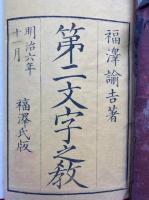 福澤諭吉著
第二文字之敎
明治六年
十一月
福澤氏版